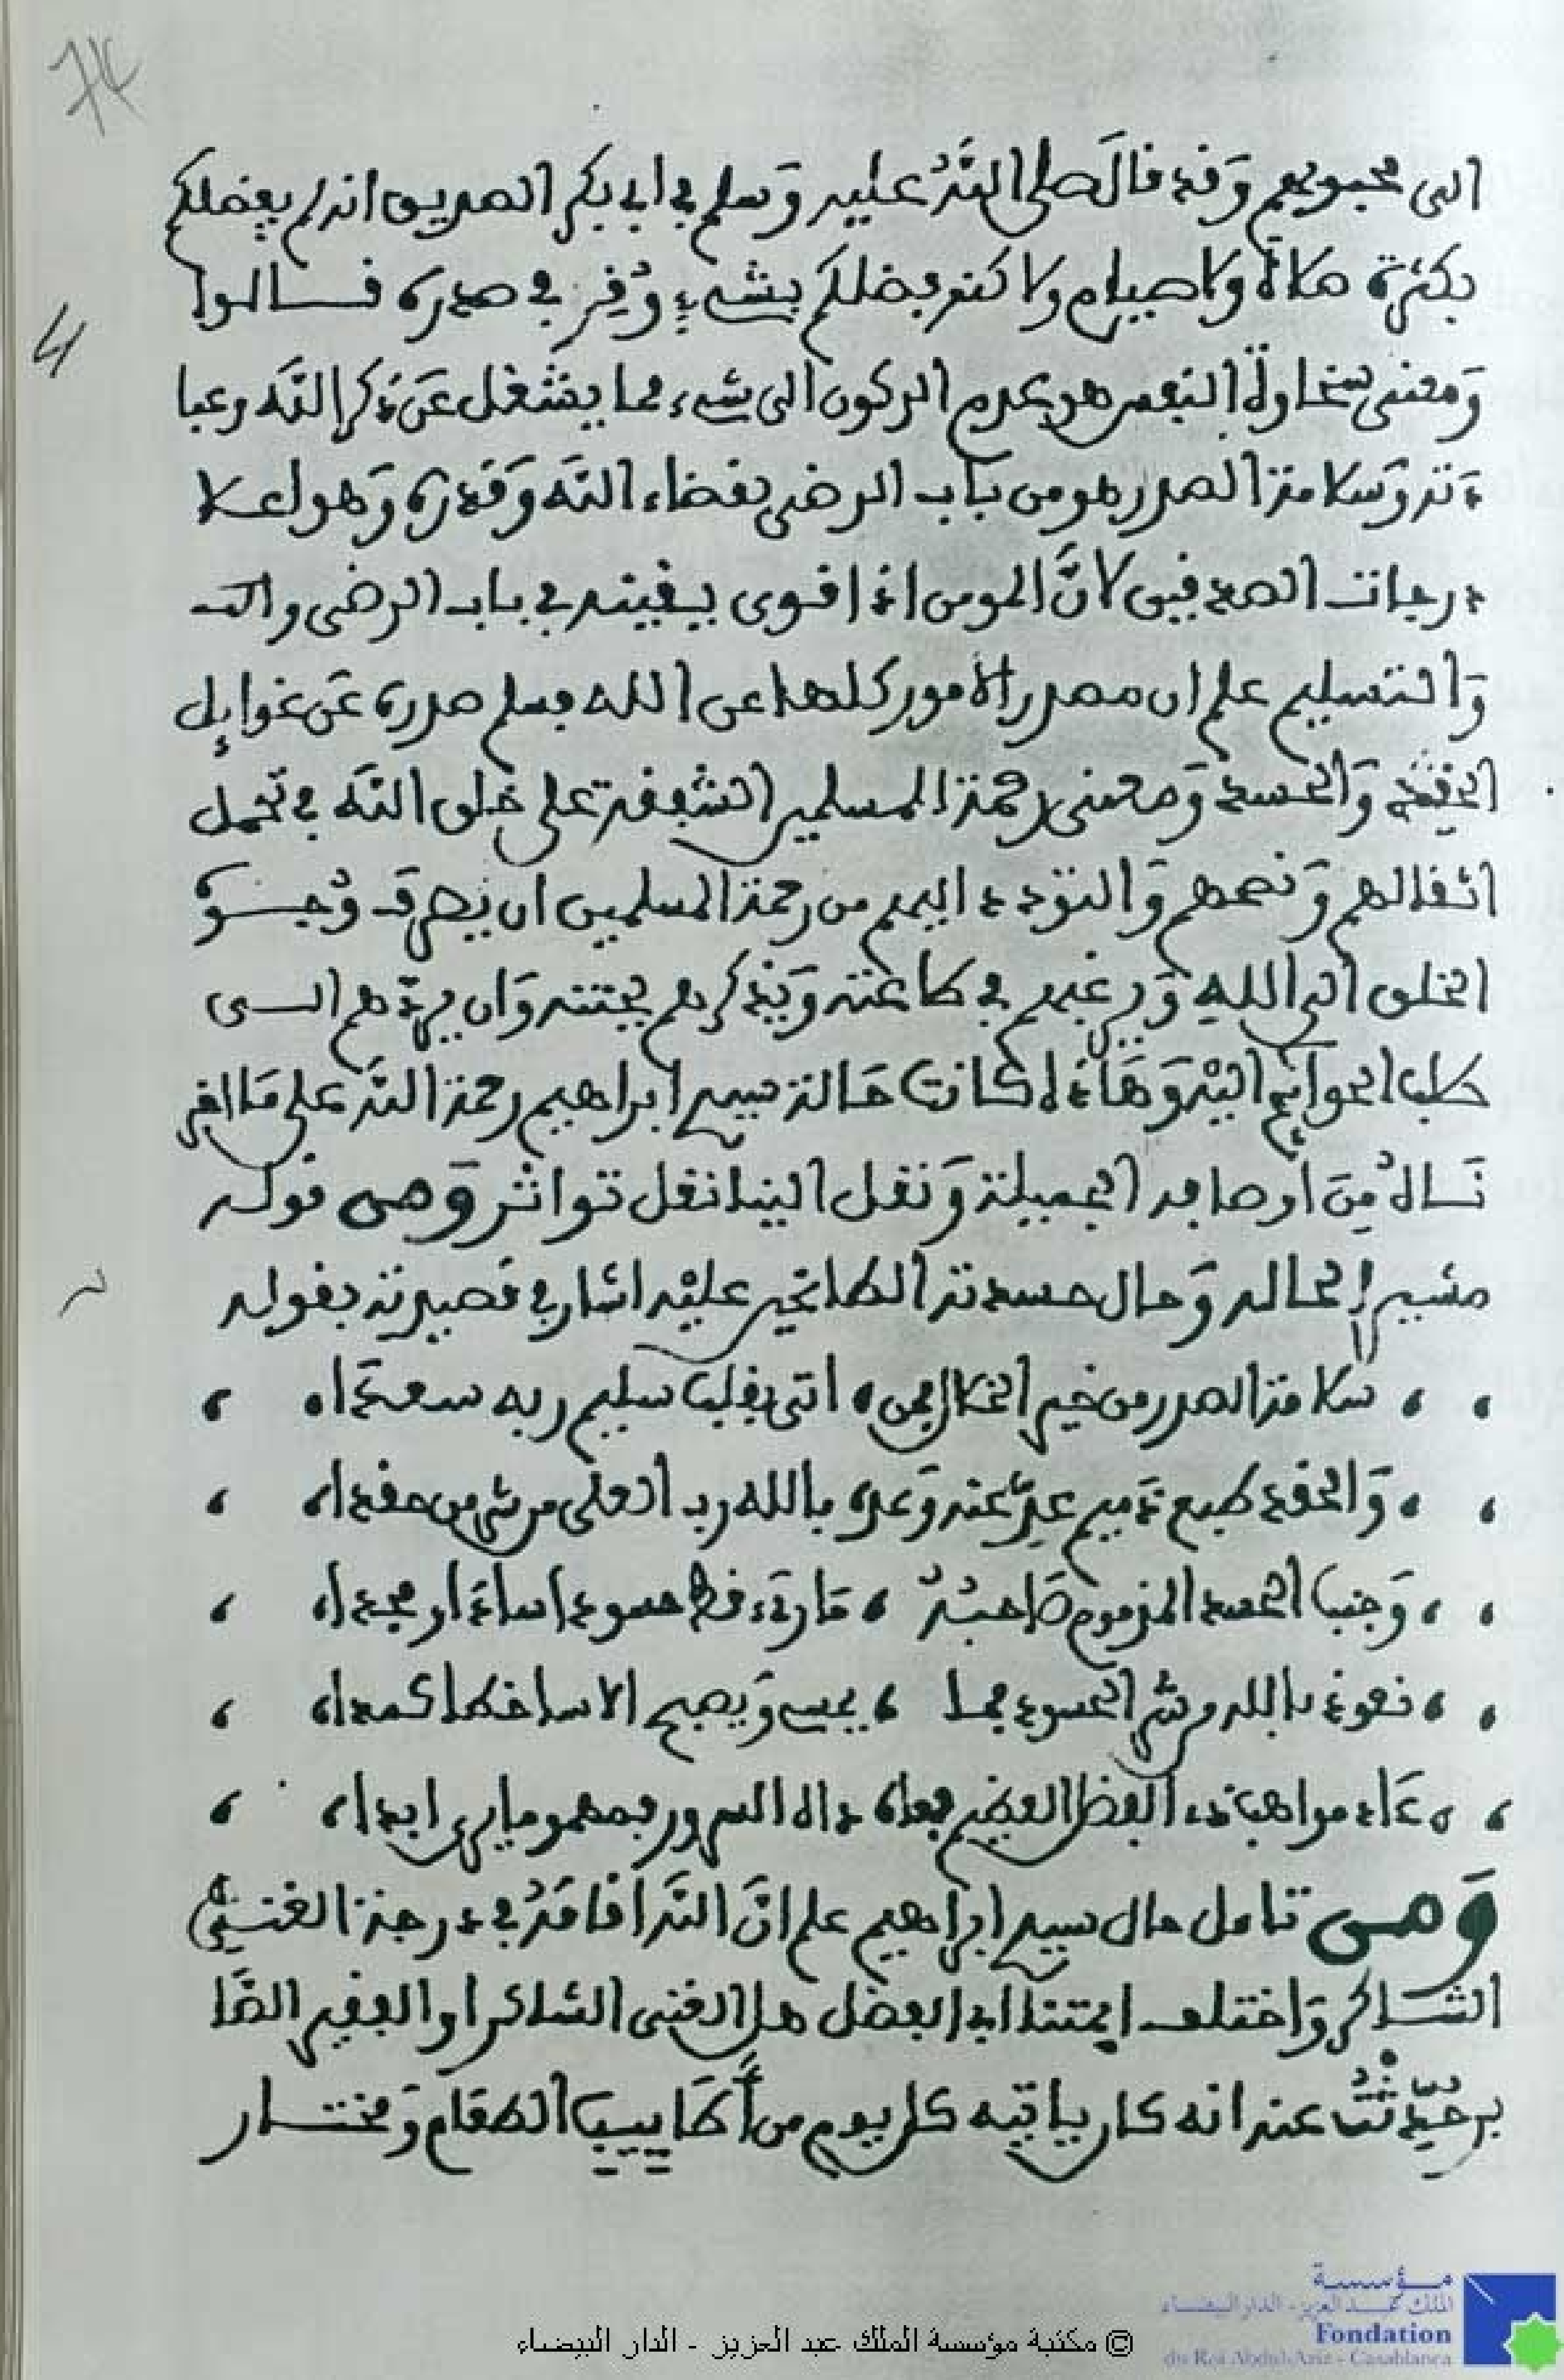 74
الى محبوبهم وَقد قالَ صلى اللَّهُ عليه وَسلم في ابي بكر الصديق انه لم يفضلكم
بكثرة صلاة ولا صيام ولا كنه فضلكم بشيءٍ وُقِر في صدره فسالوا
4
وَمعنى سخاوة النفس هو عدم الركون الى شيء مما يشغل عَن ذكر اللَّه وعبا
دته وَسلامة الصدر هو من باب الرضى بقضاء اللَّه وَقدره وَهو اعلا
درجات الصديقين لانَّ المومن اذا قوى يقينه في باب الرضى والتـ
وَالتسليم علم ان مصدر الامور كلها عن الله فسلم صدره عَن غوايِل
الحقد وَالحسد وَمعنى رحمة المسلمين الشفقة على خلق اللَّه في تحمل
اثقالهم وَنصحهم وَالتودد اليهم من رحمة المسلمين ان يصرف وُجـوه
الخلق الى اللهِ وَيرغبهم في طاعته وَيذكرهم بجنته وَان يردّهم الـى
طلب الحوايج اليْه وَهَاذا كانت حَالة سيدي ابراهيم رحمة اللَّه على مَا اخبر
نَا لهُ مِنَ اوصافه الجميلة وَنقل الينا نقل تواتر وَمن قولـه
مشيرا لحاله وَحال حسدته الطاعنين عليْه اشار في قصيدته بقوله
، ، سلامة الصدر من خير الخلال لمن ، اتى بقلب سليم ربه سعدَا ،
، ، وَالحقد طبع ذميم عِيذ عنه وَعذ بالله رب العلى من شر من حقدا ،
، ، وَجنب الحسد المذموم صَاحبُهُ ، مَا رئء قط حسود اساءَ او مجدا ،
، ، نعوذ بالله من شر الحسود فما ، يمسي وَيصبح الا ساخطا كمدا ،
، ، عَاد مواهب ذي الفضل العظيم فعاداه السرور فمهموما يرى ابدا ،
وَمن تامل حال سيدي ابراهيم علم انَّ اللَّه اقامَهُ في درجة الغنـيِّ
الشـاكر وَاختلف ايمتنا ايهما افضل هل الغنى الشاكر او الفقير الصَّا
بر حُدِّثْتُ عنه انه كان ياتيه كل يوم من أَطَاييب الطعَام وَمختـار
© مكتبة مؤسسة الملك عبد العزيز - الدار البيضاء
مـؤسسـة
الملك عبد العزيز - الدار البيضاء
Fondation
du Roi Abdul-Aziz - Casablanca